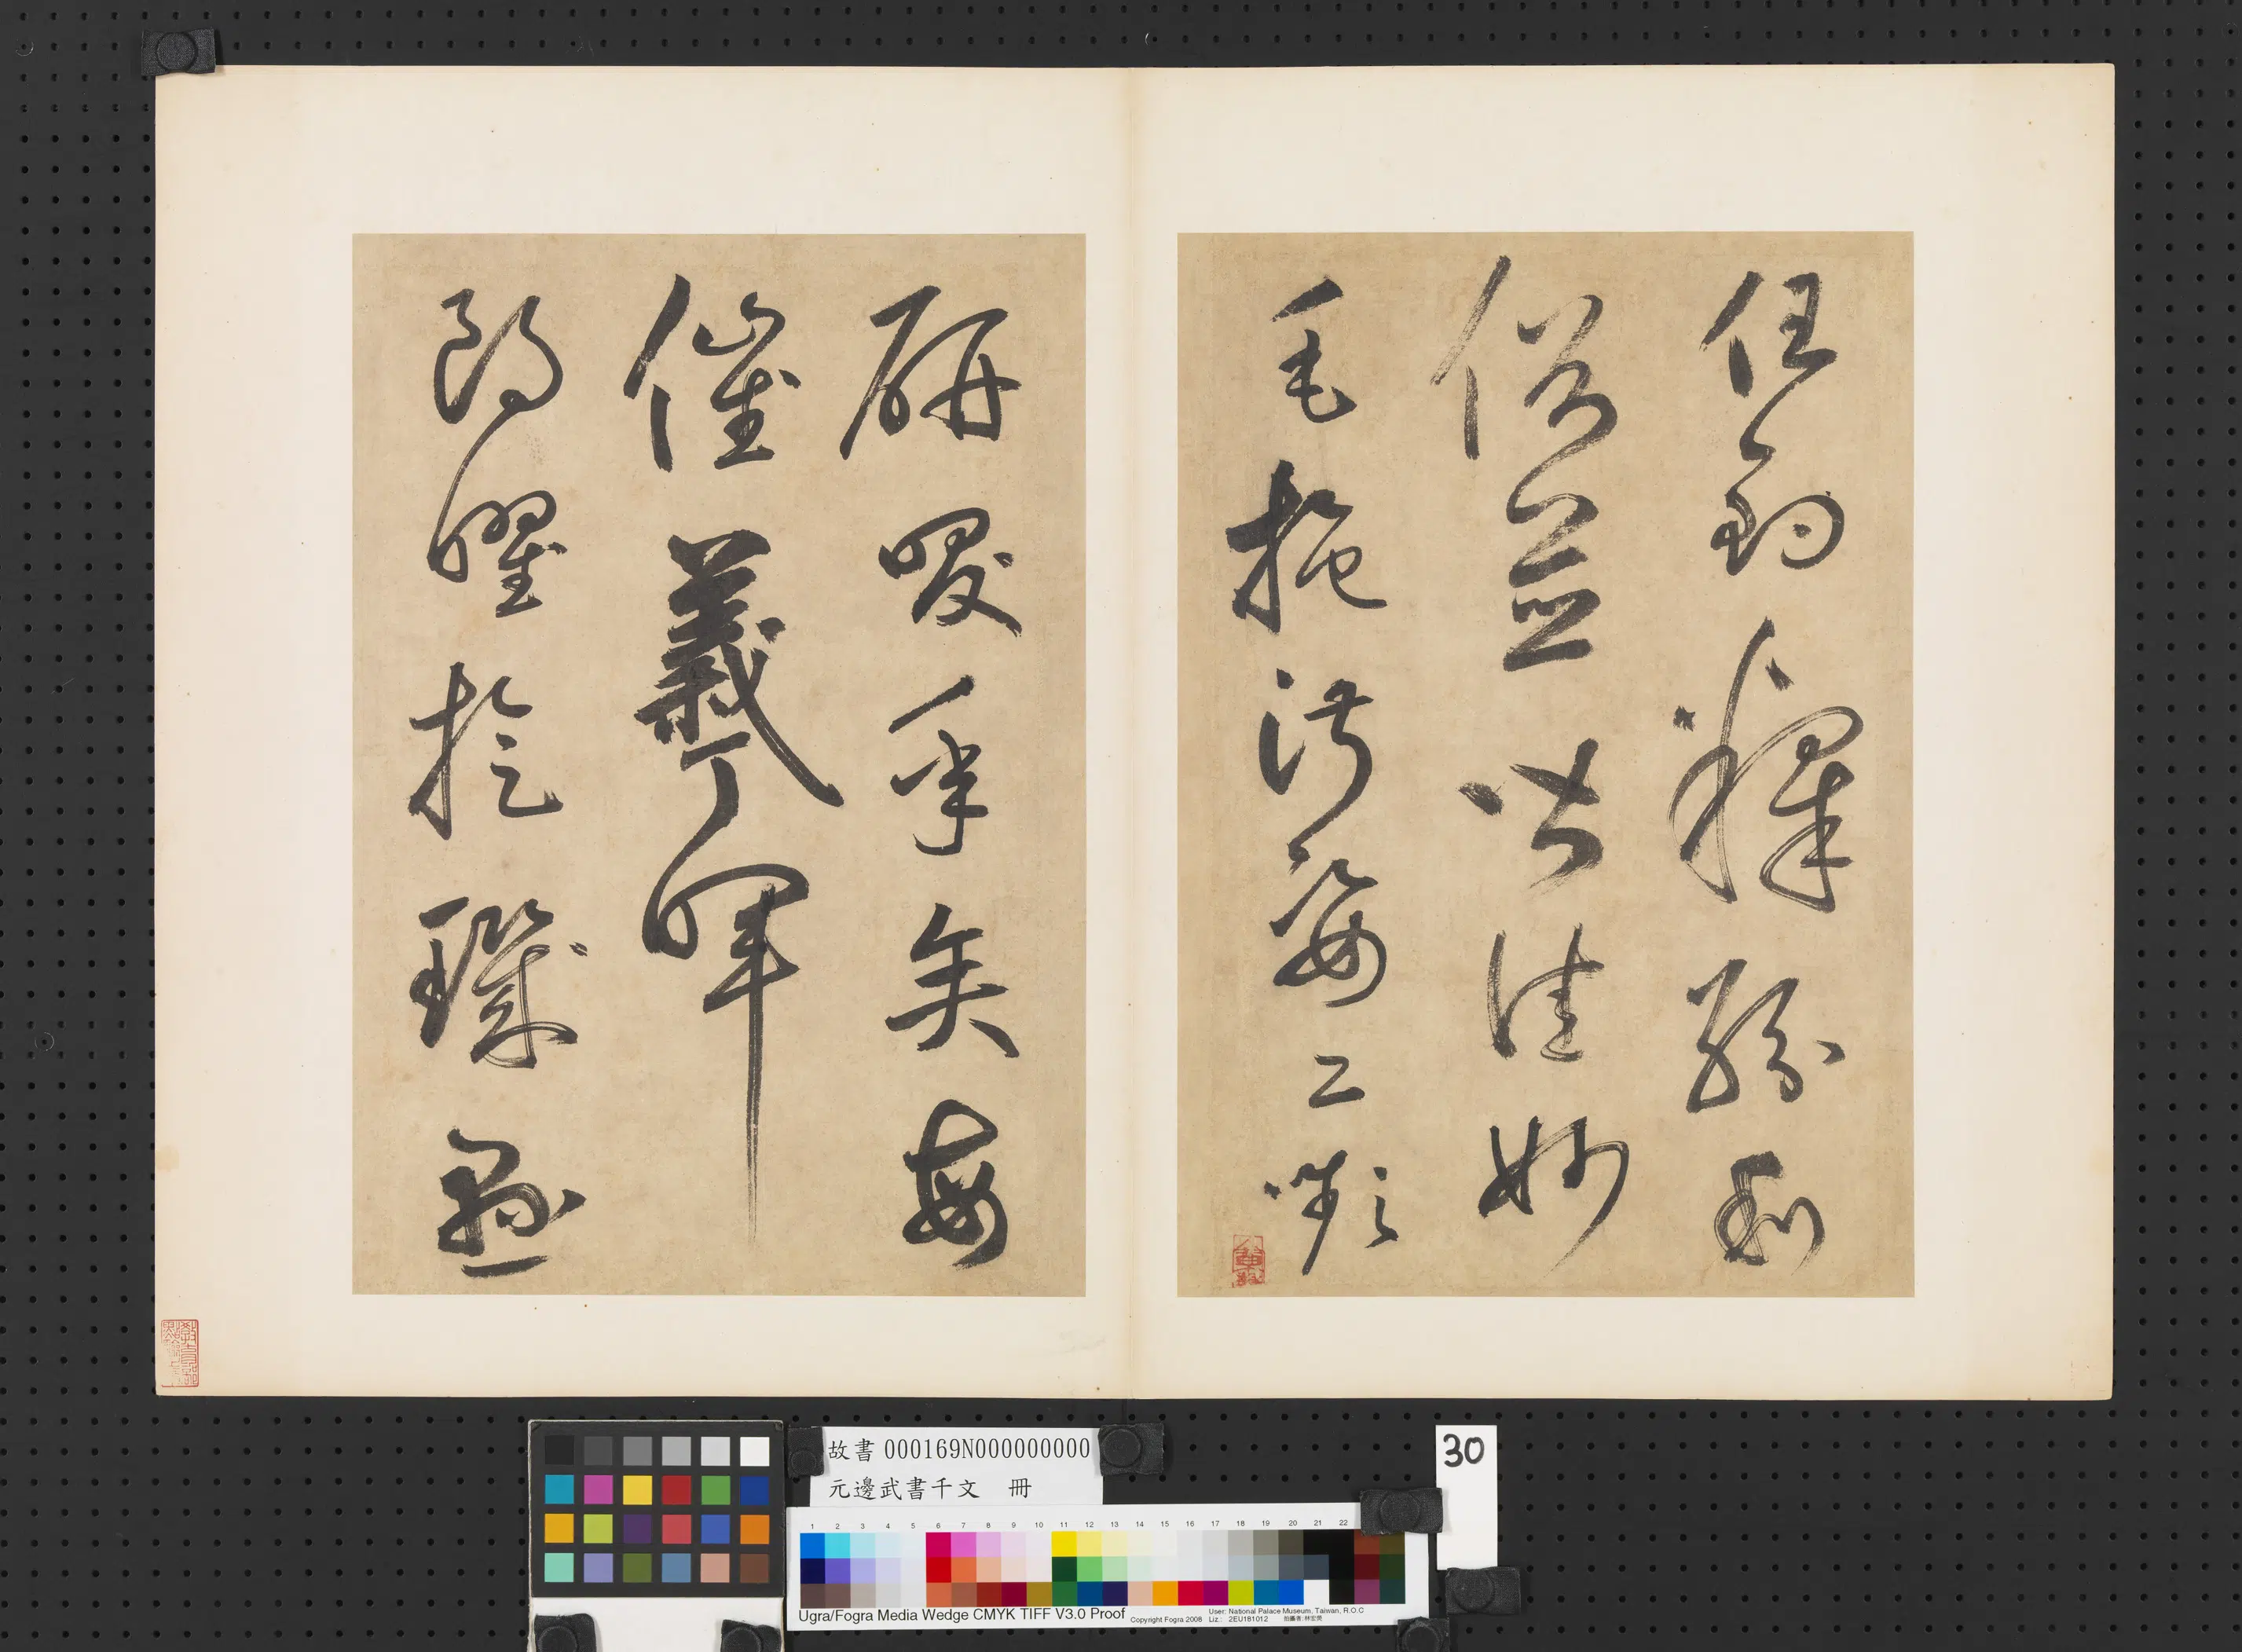 任釣釋紛利
俗並皆佳妙
毛施淑姿工嚬
研咲年矢每
催羲暉
朗曜旋璣懸
故書 000169N000000000
元邊武書千文 冊
30
1 2 3 4 5 6 7 8 9 10 11 12 13 14 15 16 17 18 19 20 21 22
Ugra/Fogra Media Wedge CMYK TIFF V3.0 Proof
Copyright Fogra 2008
User: National Palace Museum, Taiwan, R.O.C
Liz.: 2EU181012